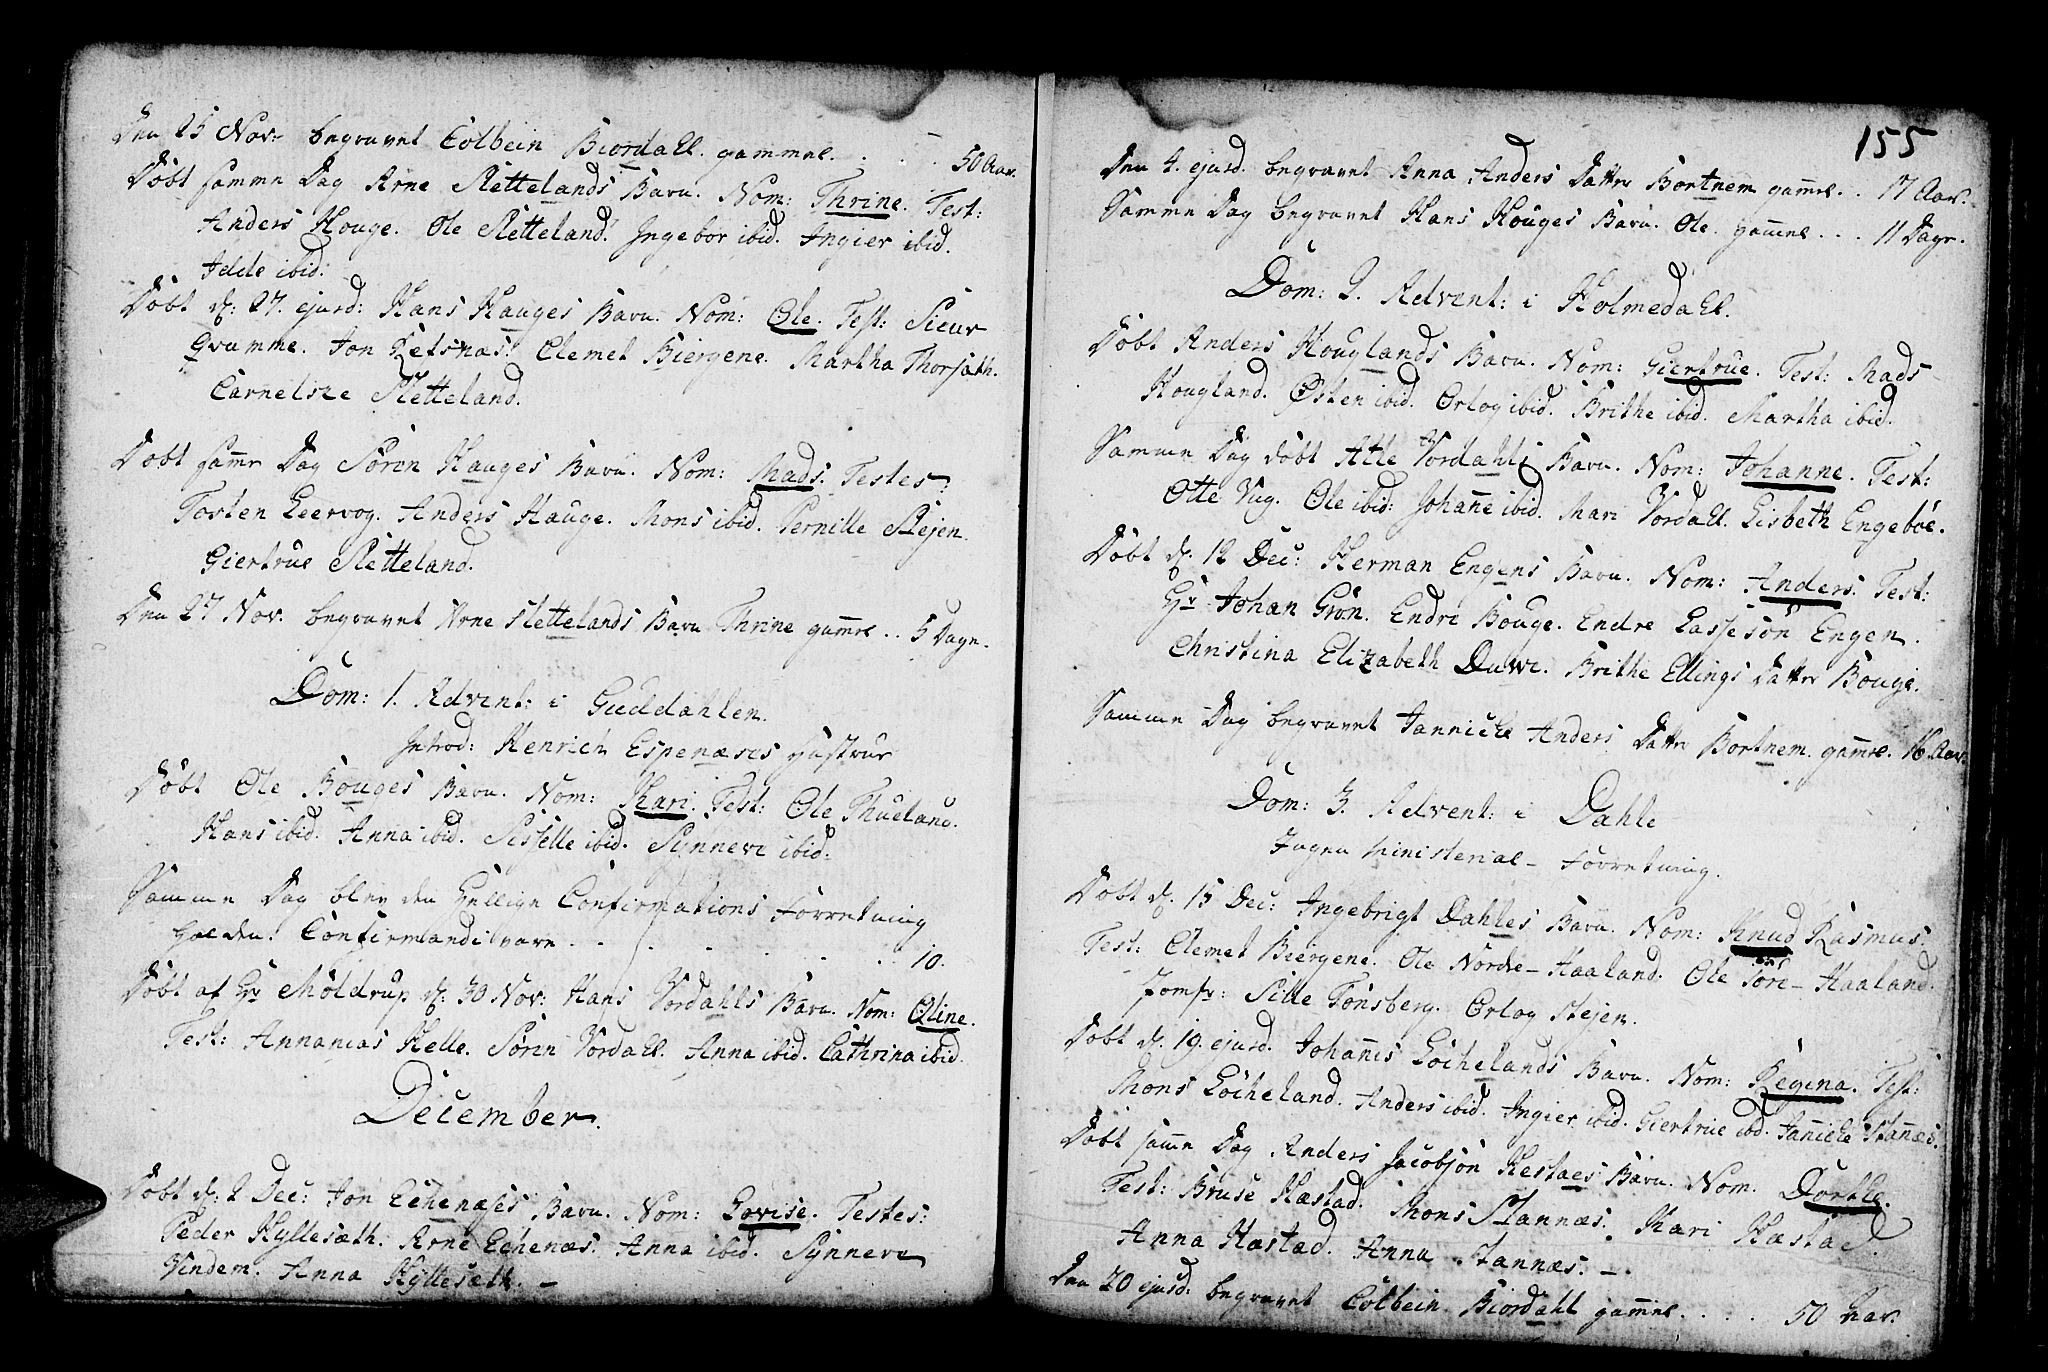 Den 25 Nov: begravet Colbein Biordahl. gammel. . . . 50 Aar.
Döbt samme Dag Arne Slettelands Barn. Nom: Thrine. Test:
Anders Houge. Ole Sletteland. Ingebor ibid. Ingier ibid.
Idde ibid.
Döbt d. 27. ejusd: Hans Hauges Barn. Nom: Ole. Test: Sieur
Qvamme. Jon Retsnæs. Clemet Biergene. Martha Thorsæth.
Carnelsze Sletteland.
Döbt samme Dag Sörin Hauges Barn. Nom: Mads. Testes:
Tosten Leervog. Anders Hauge. Mons ibid. Pernille Stejen.
Giertrue Sletteland.
Den 27 Nov. begravet Arne Slettelands Barn Thrine gamel. . 5 Dage.
Dom: 1. Advent: i Guddahlen.
Introd: Henrich Espenæses Hustrue
Döbt Ole Bouges Barn. Nom: Kari. Test: Ole Thueland.
Hans ibid. Anna ibid. Sisselle ibid. Synneve ibid.
Samme Dag blev den Hellige Confirmations Forretning
holden. Confirmandi vare . . . . . . . 10.
Döbt af Hr Möldrup d. 30 Nov: Hans Vordahls Barn. Nom: Oline.
Test: Annanias Helle. Sörin Vordahl. Anna ibid. Cathrina ibid.
December.
Döbt d. 2 Dec: Jon Echenæses Barn. Nom: Lovise. Testes:
Peder Hyllesæth. Arne Echenæs. Anna ibid. Synneve
Vindem. Anna Hyllesæth. –
155
Den 4. ejusd. begravet Anna Anders Datter Bortnem gamel. . 17 Aar.
Samme Dag begravet Hans Houges Barn. Ole. gamel . . . 11 Dage.
Dom: 2. Advent: i Holmedahl.
Döbt Anders Houglands Barn. Nom: Giertrue. Test: Mads
Hougland. Østen ibid. Orlog ibid. Brithe ibid. Martha ibid.
Samme Dag döbt Atle Vordahls Barn. Nom: Johanne. Test:
Otte Vug. Ole ibid: Johañe ibid. Mari Vordahl. Lisbeth Engeböe.
Döbt d. 12 Dec: Herman Engens Barn. Nom: Anders. Test:
Hr Johan Grön. Endre Bouge. Endre Lassesön Engen.
Christina Elizabeth Duwe. Brithe Ellings Datter Bouge.
Samme Dag begravet Janniche Anders Datter Bortnem. gamel. 16 Aar.
Dom: 3. Advent: i Dahle
Ingen Ministerial-Forretning.
Döbt d. 15 Dec: Ingebrigt Dahles Barn. Nom: Knud Rasmus.
Test: Clemet Biergene. Ole Nordre-Haaland. Ole Söre-Haaland.
Jomfr: Sille Tönsberg. Orlog Stejen.
Döbt d. 19. ejusd. Johañes Löchelands Barn. Nom: Regina. Test:
Mons Löcheland. Anders ibid. Ingier ibid. Giertrue ibd. Janiche Stañæs.
Döbt samme Dag Anders Jacobsön Hestaes Barn. Nom. Dorthe.
Test: Bruse Hæstad. Mons Stannæs. Kari Hæstad.
Anna Hæstad. Anna Stannæs. –
Den 20 ejusd: begravet Colbein Biordahl gamel. . . . 50 Aar.